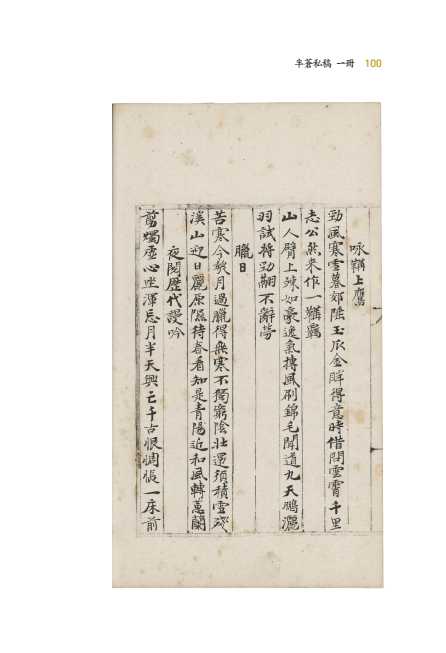 半蒼私稿 一冊 100
咏鞲上鷹
勁風寒雪暮郊陲玉爪金眸得意時借問雲霄千里
志公然来作一鞲羈
山人臂上竦如豪逸氣摶風刷錦毛聞道九天鵬灑
羽試将勁翮不辭勞
臘日
苦寒今幾月過臘得無寒不獨窮陰壮還須積雪殘
溪山迎日麗原隰待春看知是青陽近和風轉蕙蘭
夜閱歴代謾吟
剪燭虚心坐渾忘月半天興亡千古恨惆悵一床前